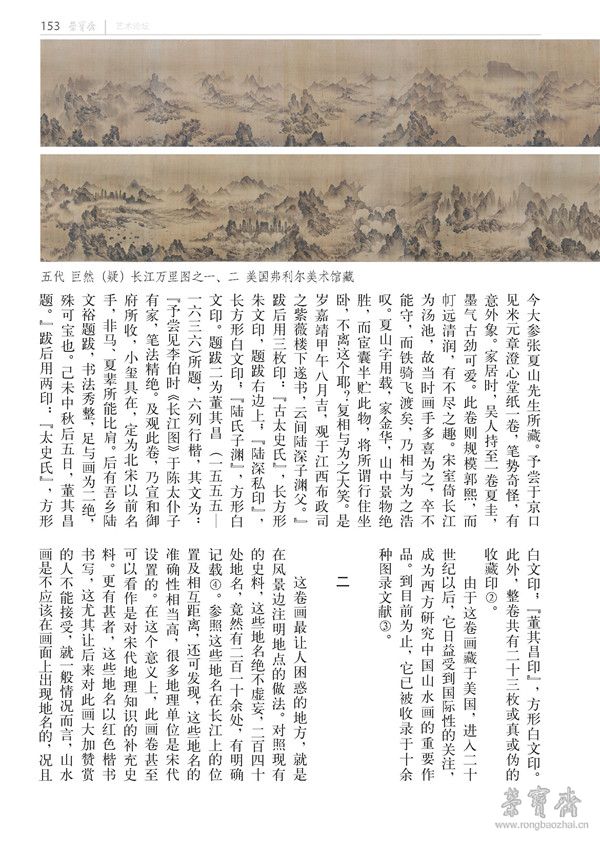 153 荣宝斋 艺术论坛
五代 巨然（疑）长江万里图之一、二 美国弗利尔美术馆藏
今大参张夏山先生所藏。予尝于京口
见米元章澄心堂纸一卷，笔势奇怪，有
意外象。家居时，吴人持至一卷夏圭，
墨气古劲可爱。此卷则规模郭熙，而
远清润，有不尽之趣。宋室倚长江
为汤池，故当时画手多喜为之，卒不
能守，而铁骑飞渡矣，乃相与为之浩
叹。夏山字用载，家金华，山中景物绝
胜，而宦囊半贮此物，将所谓行住坐
卧，不离这个耶？复相与为之大笑。是
岁嘉靖甲午八月吉，观于江西布政司
之紫薇楼下遂书，云间陆深子渊父。』
跋后用三枚印：『古太史氏』，长方形
朱文印，题跋右边上；『陆深私印』，
长方形白文印；『陆氏子渊』，方形白
文印。题跋二为董其昌（一五五五—
一六三六）所题，六列行楷，其文为：
『予尝见李伯时《长江图》于陈太仆子
有家，笔法精绝。及观此卷，乃宣和御
府所收，小玺具在，定为北宋以前名
手，非马、夏辈所能比肩。后有吾乡陆
文裕题跋，书法秀整，足与画为二绝，
殊可宝也。己未中秋后五日，董其昌
题。』跋后用两印：『太史氏』，方形
白文印；『董其昌印』，方形白文印。
此外，整卷共有二十三枚或真或伪的
收藏印②。
由于这卷画藏于美国，进入二十
世纪以后，它日益受到国际性的关注，
成为西方研究中国山水画的重要作
品。到目前为止，它已被收录于十余
种图录文献③。
二
这卷画最让人困惑的地方，就是
在风景边注明地点的做法。对照现有
的史料，这些地名绝不虚妄，二百四十
处地名，竟然有二百一十余处，有明确
记载④。参照这些地名在长江上的位
置及相互距离，还可发现，这些地名的
准确性相当高，很多地理单位是宋代
设置的。在这个意义上，此画卷甚至
可以看作是对宋代地理知识的补充史
料。更有甚者，这些地名以红色楷书
书写，这尤其让后来对此画大加赞赏
的人不能接受，就一般情况而言，山水
画是不应该在画面上出现地名的，况且
荣宝斋
www.rongbaozhai.cn